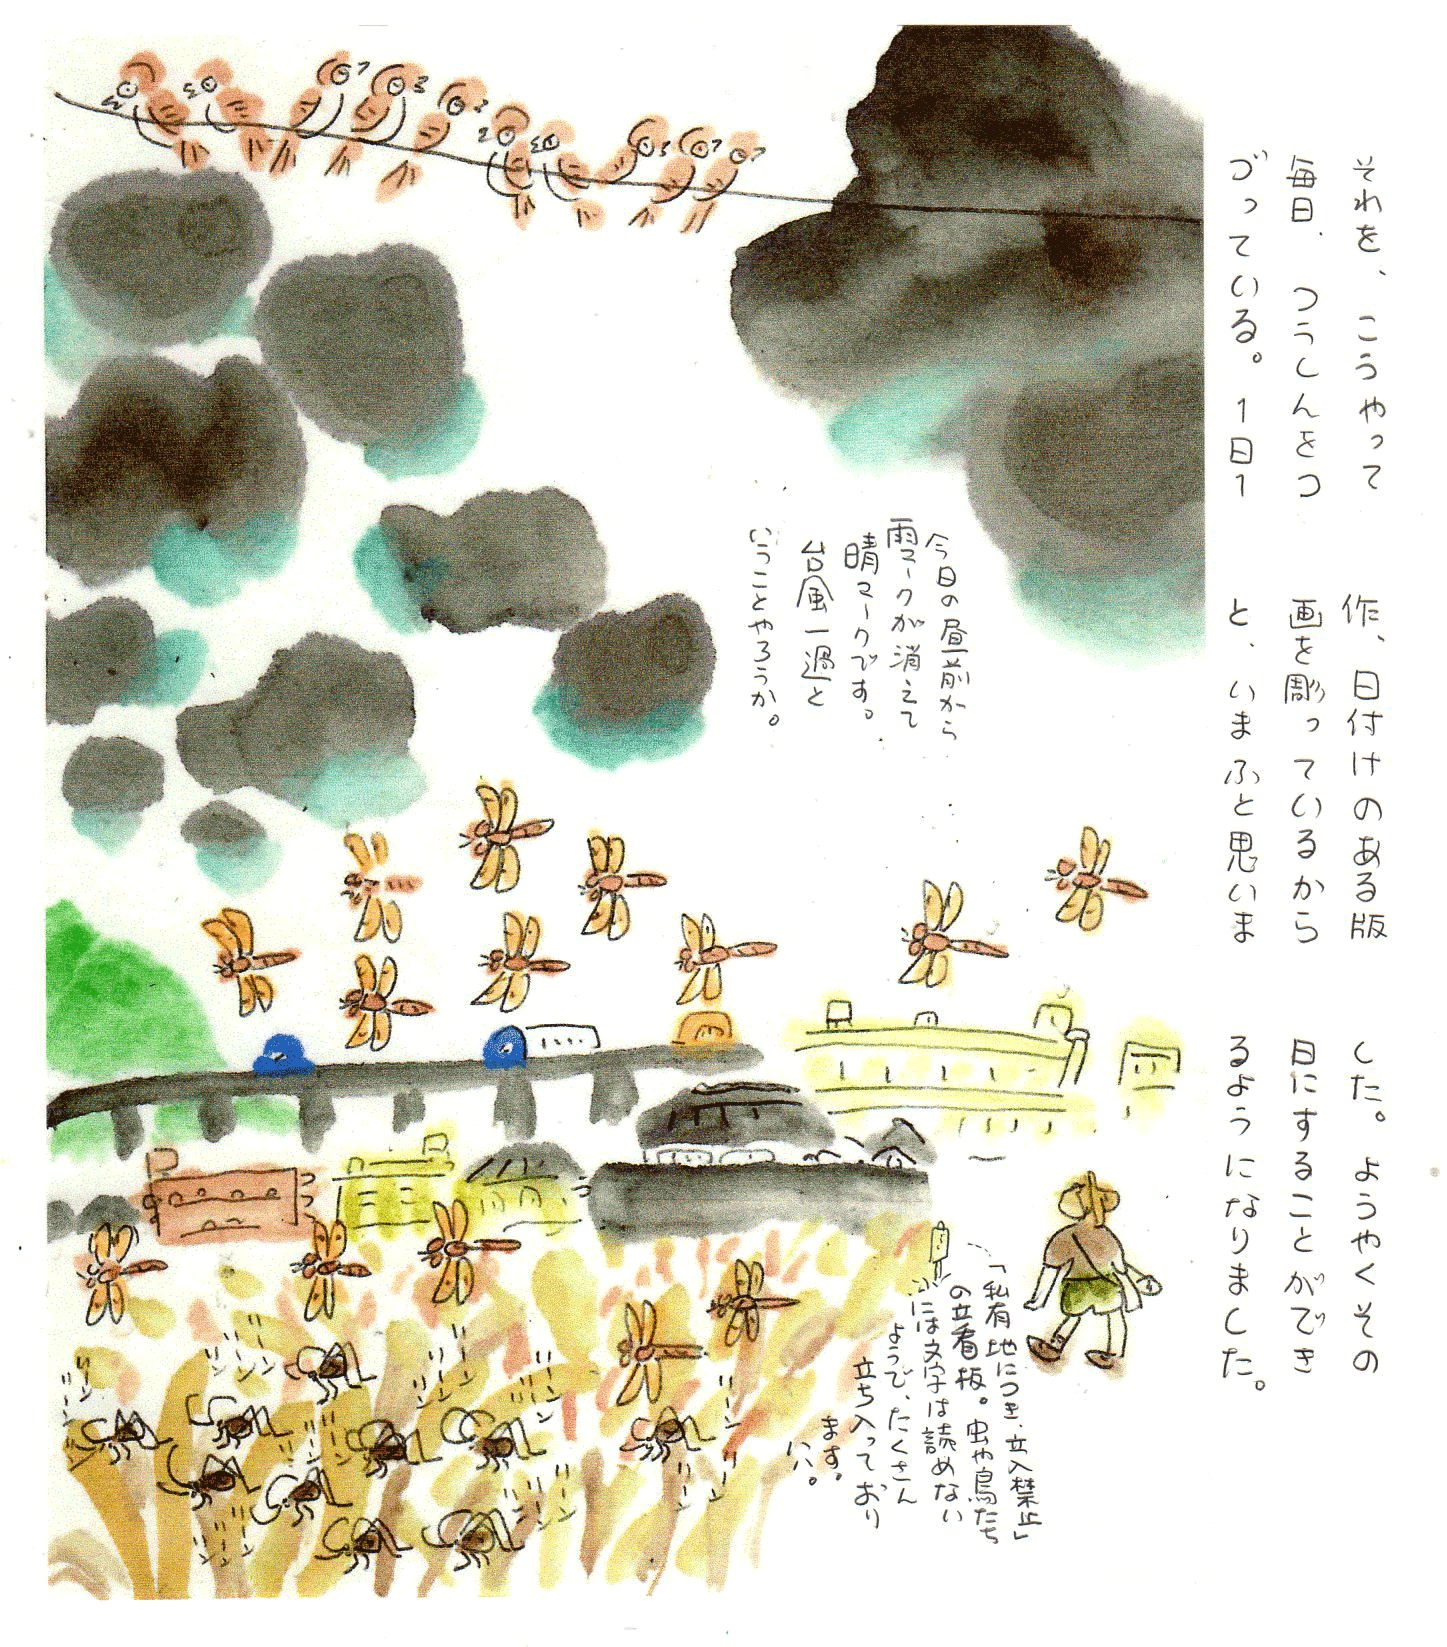 それを、こうやって
毎日、つうしんをつ
づっている。1日1
作、日付けのある版
画を彫っているから
と、いまふと思いま
した。ようやくその
日にすることができ
るようになりました。
今日の昼前から
雨マークが消えて
晴マークです。
台風一過と
いうことやろうか。
「私有地につき、立入禁止」
の立看板。虫や鳥たち
には文字は読めない
ようで、たくさん
立ち入っており
ます。
ハハ。